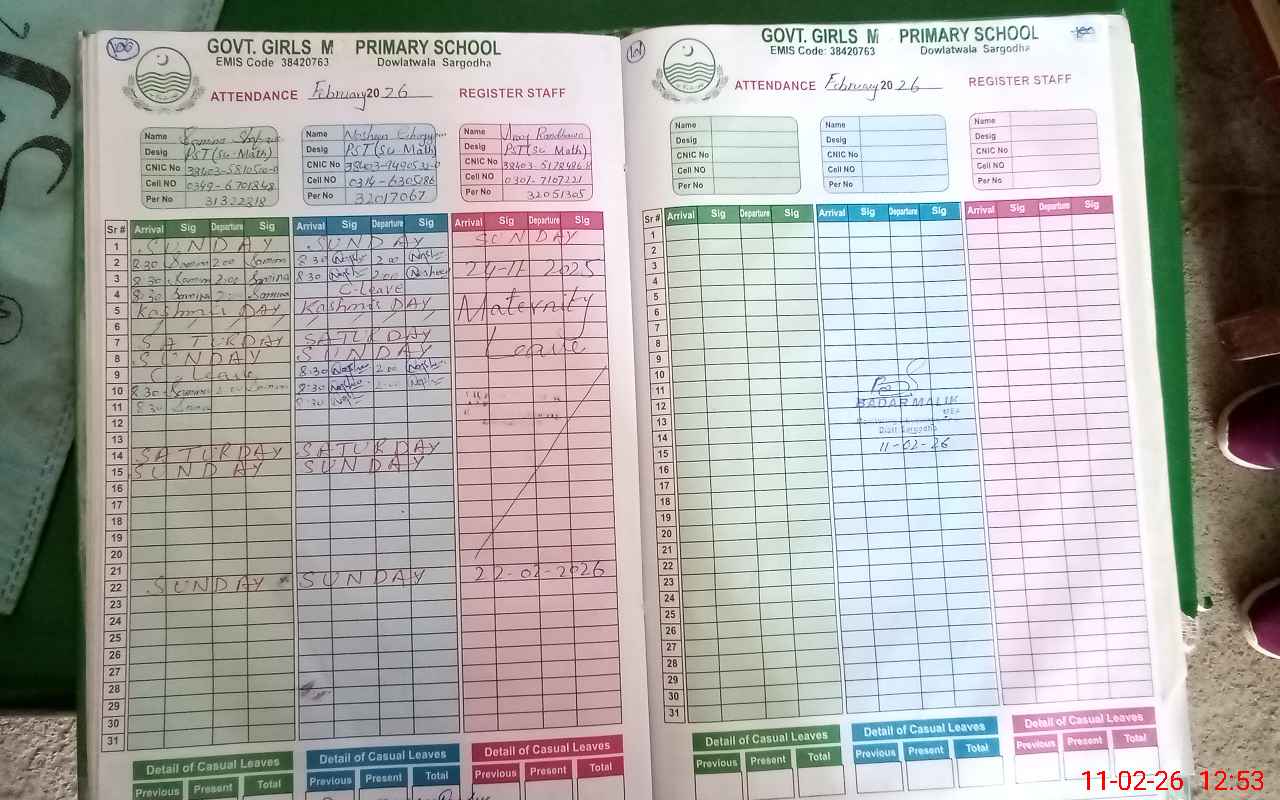 106
GOVT. GIRLS M PRIMARY SCHOOL
EMIS Code 38420763 Dowlatwala Sargodha
ATTENDANCE February 2026 REGISTER STAFF
Name Samina
Desig PST(Sc-Math)
CNIC No
Cell NO
Per No
Name Nosheen
Desig PST(Sc Math)
CNIC No
Cell NO 0314-6305186
Per No 32017067
Name Randhawa
Desig PST(Sc Math)
CNIC No
Cell NO 0301-7107221
Per No 32051305
Sr # Arrival Sig Departure Sig Arrival Sig Departure Sig Arrival Sig Departure Sig
1 SUNDAY SUNDAY SUNDAY
2 8:30 2:00 Samina 8:30 2:00 24-11-2025
3 8:30 2:00 Samina 8:30 2:00
4 8:30 Samina Samina C-Leave
5 Kashmir DAY Kashmir DAY Maternity
6
7 SATURDAY SATURDAY Leave
8 SUNDAY SUNDAY
9 Leave 8:30 2:00
10 8:30 8:30
11 8:30 8:30
12
13
14 SATURDAY SATURDAY
15 SUNDAY SUNDAY
16
17
18
19
20
21
22 SUNDAY SUNDAY 22-02-2026
23
24
25
26
27
28
29
30
31
Detail of Casual Leaves Detail of Casual Leaves Detail of Casual Leaves
Previous Present Total Previous Present Total Previous Present Total
GOVT. GIRLS M PRIMARY SCHOOL
EMIS Code: 38420763 Dowlatwala Sargodha
ATTENDANCE February 2026 REGISTER STAFF
Name
Desig
CNIC No
Cell NO
Per No
Name
Desig
CNIC No
Cell NO
Per No
Name
Desig
CNIC No
Cell NO
Per No
Sr # Arrival Sig Departure Sig Arrival Sig Departure Sig Arrival Sig Departure Sig
1
2
3
4
5
6
7
8
9
10
11
12 BADAR MALIK
13 MEA
14 Distt Sargodha
15 11-02-26
16
17
18
19
20
21
22
23
24
25
26
27
28
29
30
31
Detail of Casual Leaves Detail of Casual Leaves Detail of Casual Leaves
Previous Present Total Previous Present Total Previous Present Total
11-02-26 12:53